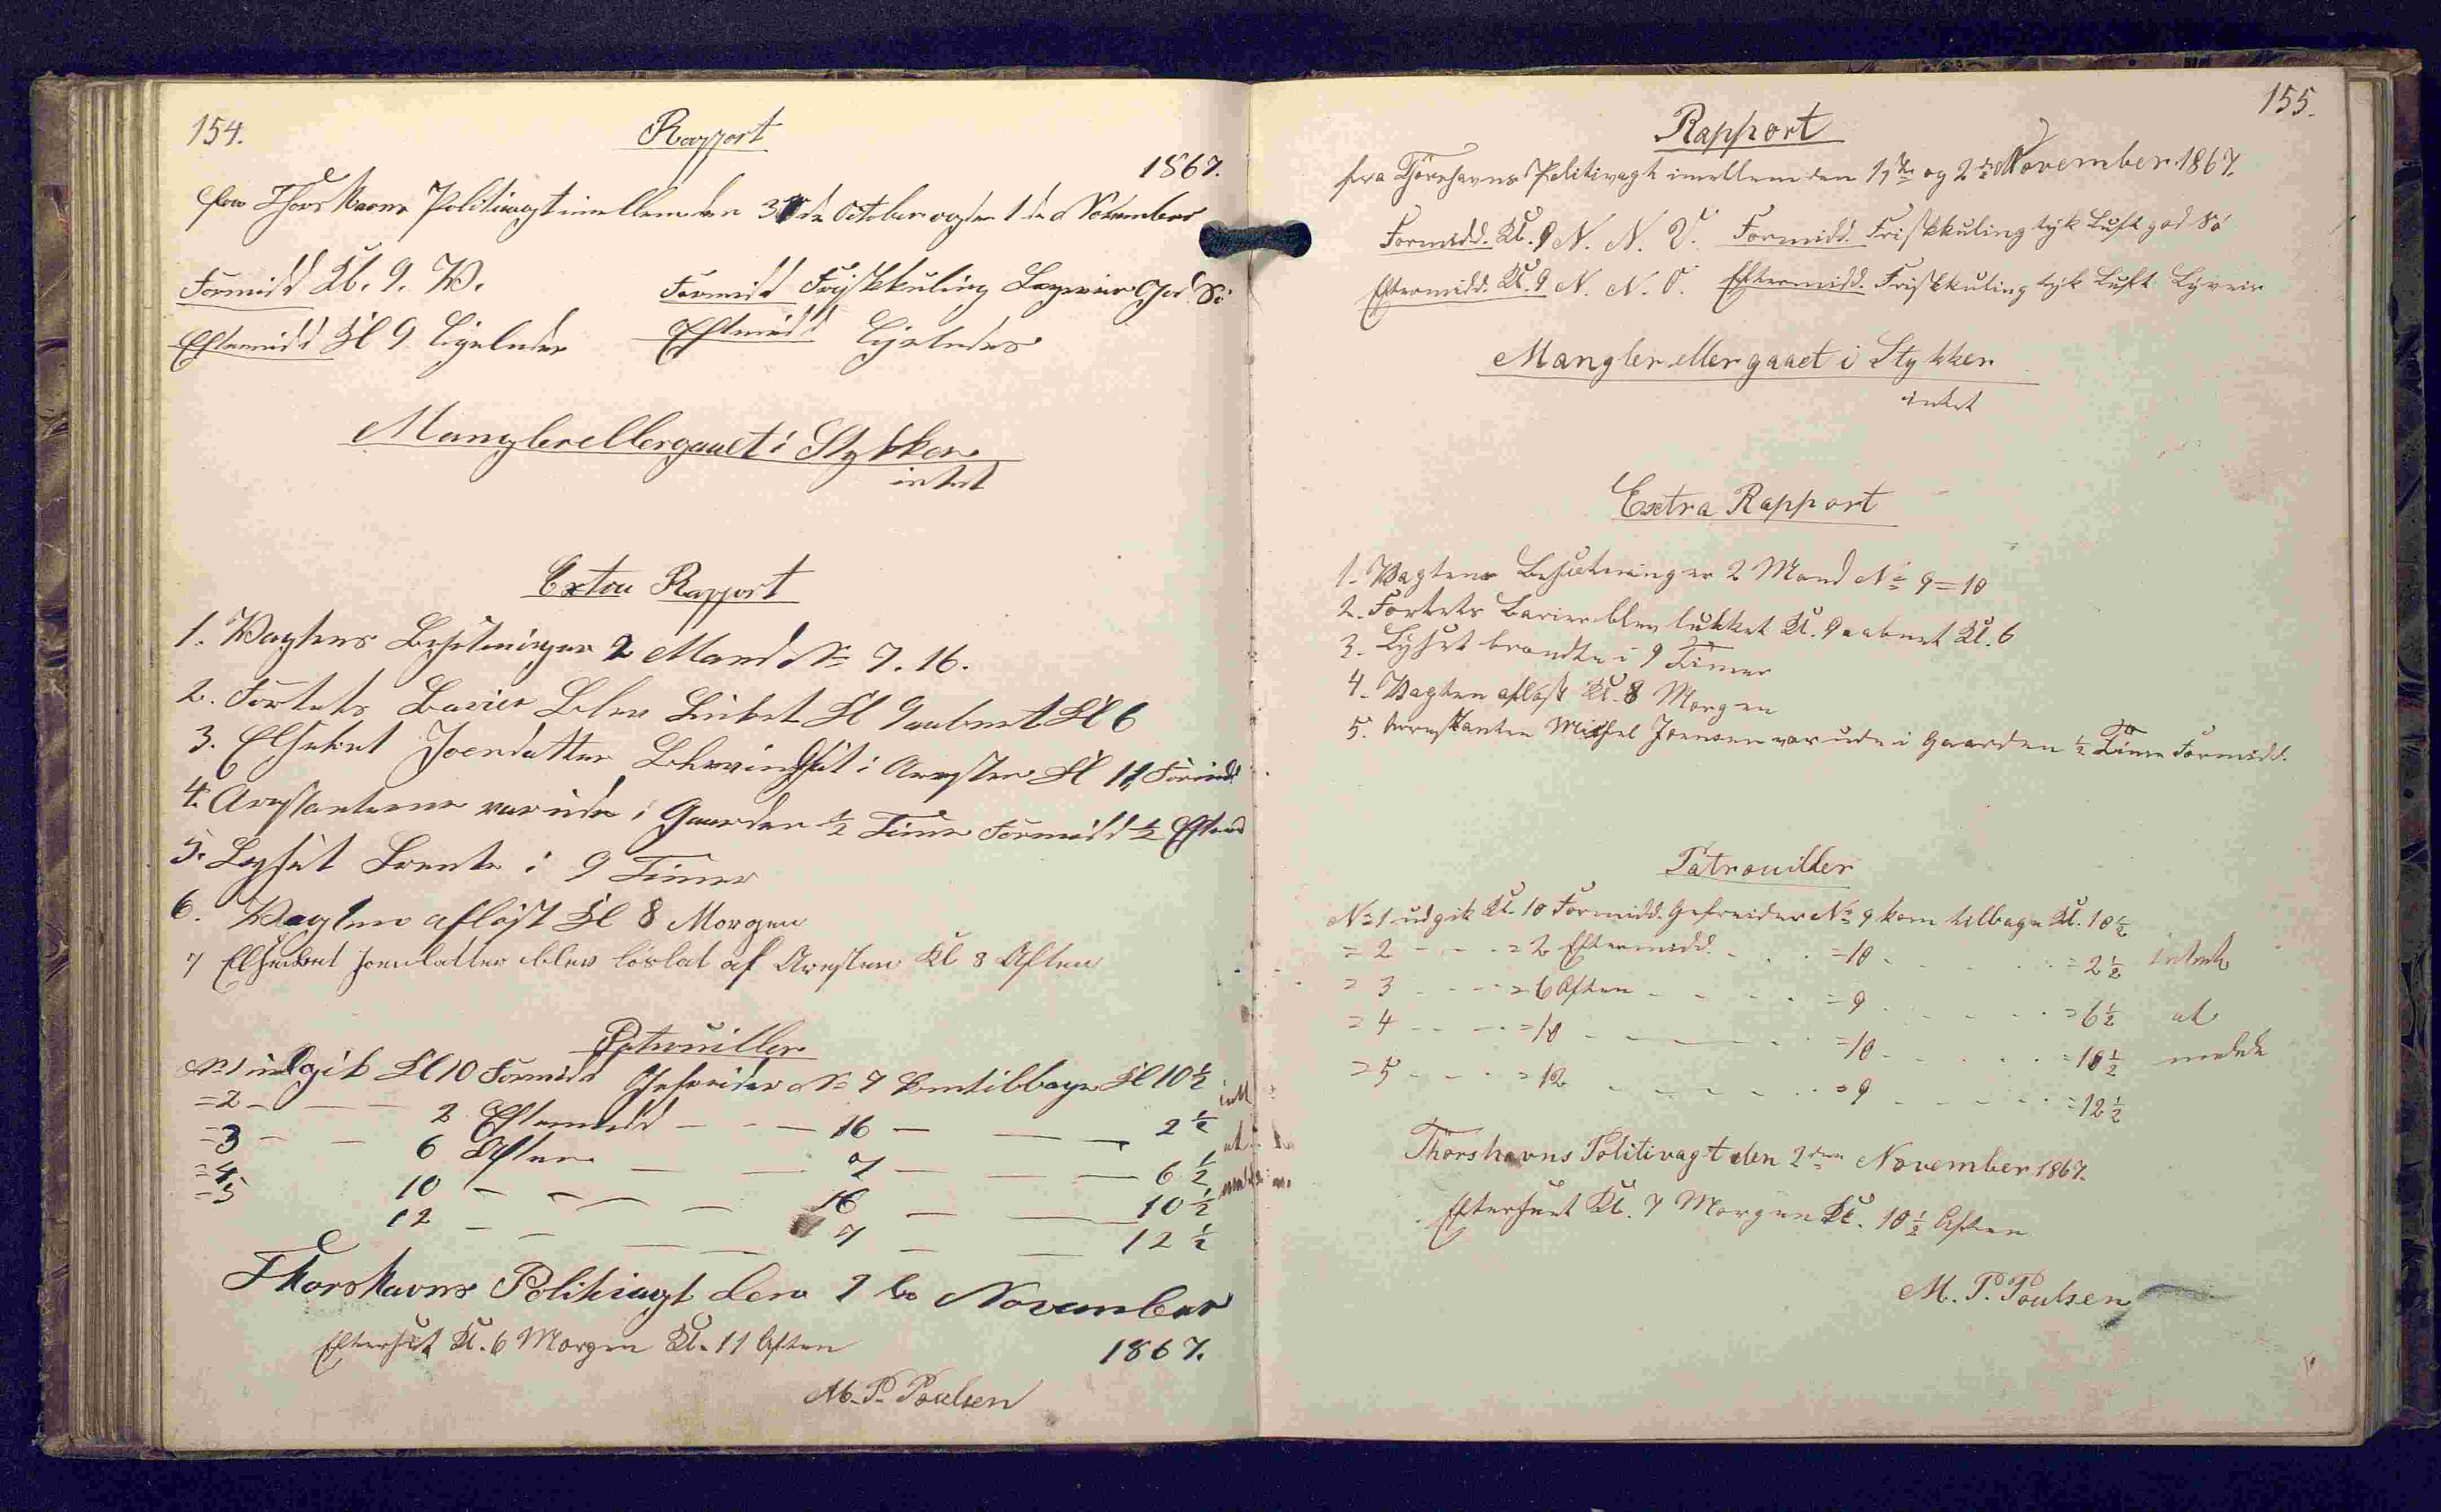 154.
Rapport
1867.
fra Thorshavns Politivagt imellem den 31de October og den 1de November
Formidd Kl. 9. W. Formidd Friskkuling Løyveir God Sö
Eftermidd Kl 9 ligeledes Eftmidd ligeledes
Mangler eller gaaet i Stykker
intet
Extra Rapport
1. Wagtens Besetninger 2 Mand No 7. 16.
2. Fortets Barier Blev Lukket Kl 9 aabnet Kl 6
3. Elsebet Joensdatter Blev indsat i Aresten Kl 11 Formd
4. Arestanterne var ude i Gaarden ½ Time Formidd ½ Eftmd
5. Lyset Brente i 9 Timer
6. Wagten afløst Kl 8 Morgen
7 Elsebet Joensdatter blev löslat af Aresten Kl 8 Aften
Patrouiller
No 1 udgik Kl 10 Formidd Gefreider No 7 kom tilbage Kl 10½ intet
=2 - - 2 Eftermidd - - - 16 - - - 2½
=3 - - 6 Aften - - 7 - - - 6½ at
=4 10 - - - - 16 - - 10½ melde
=5 12 - - - - 7 - - 12½
Thorshavns Politivagt den 1de November
1867.
Efterseet Kl. 6 Morgen Kl. 11 Aften
M. P. Poulsen
155.
Rapport
fra Thorshavns Politivagt imellem den 1ste og 2den November 1867.
Formidd. Kl. 9 N. N. V. Formidd. Friskkuling tyk Luft god Sö
Eftermidd. Kl. 9 N. N. O. Eftermidd. Friskkuling tyk Luft Lyveir
Mangler eller gaaet i Stykker
intet
Extra Rapport
1. Wagtens Besætning er 2 Mand No 9=10
2. Fortets Barier blev lukket Kl. 9 aabnet Kl. 6
3. Lyset brændte i 9 Timer
4. Vagten afløst Kl. 8 Morgen
5. Arrestanten Michel Joensen var ude i Gaarden ½ Time Formidd.
Patrouiller
No 1 udgik Kl. 10 Formidd. Gefreider No 9 kom tilbage Kl. 10½
= 2 - - - = 2 Eftermidd. - - - =10 - - - = 2½ intet
= 3 - - - = 6 Aften - - - = 9 - - - = 6½ at
= 4 - - - = 10 - - - =10 - - - = 10½ melde
= 5 - - - = 12 - - - = 9 - - - = 12½
Thorshavns Politivagt den 2den November 1867.
Efterseet Kl. 7 Morgen Kl. 10½ Aften
M. P. Poulsen